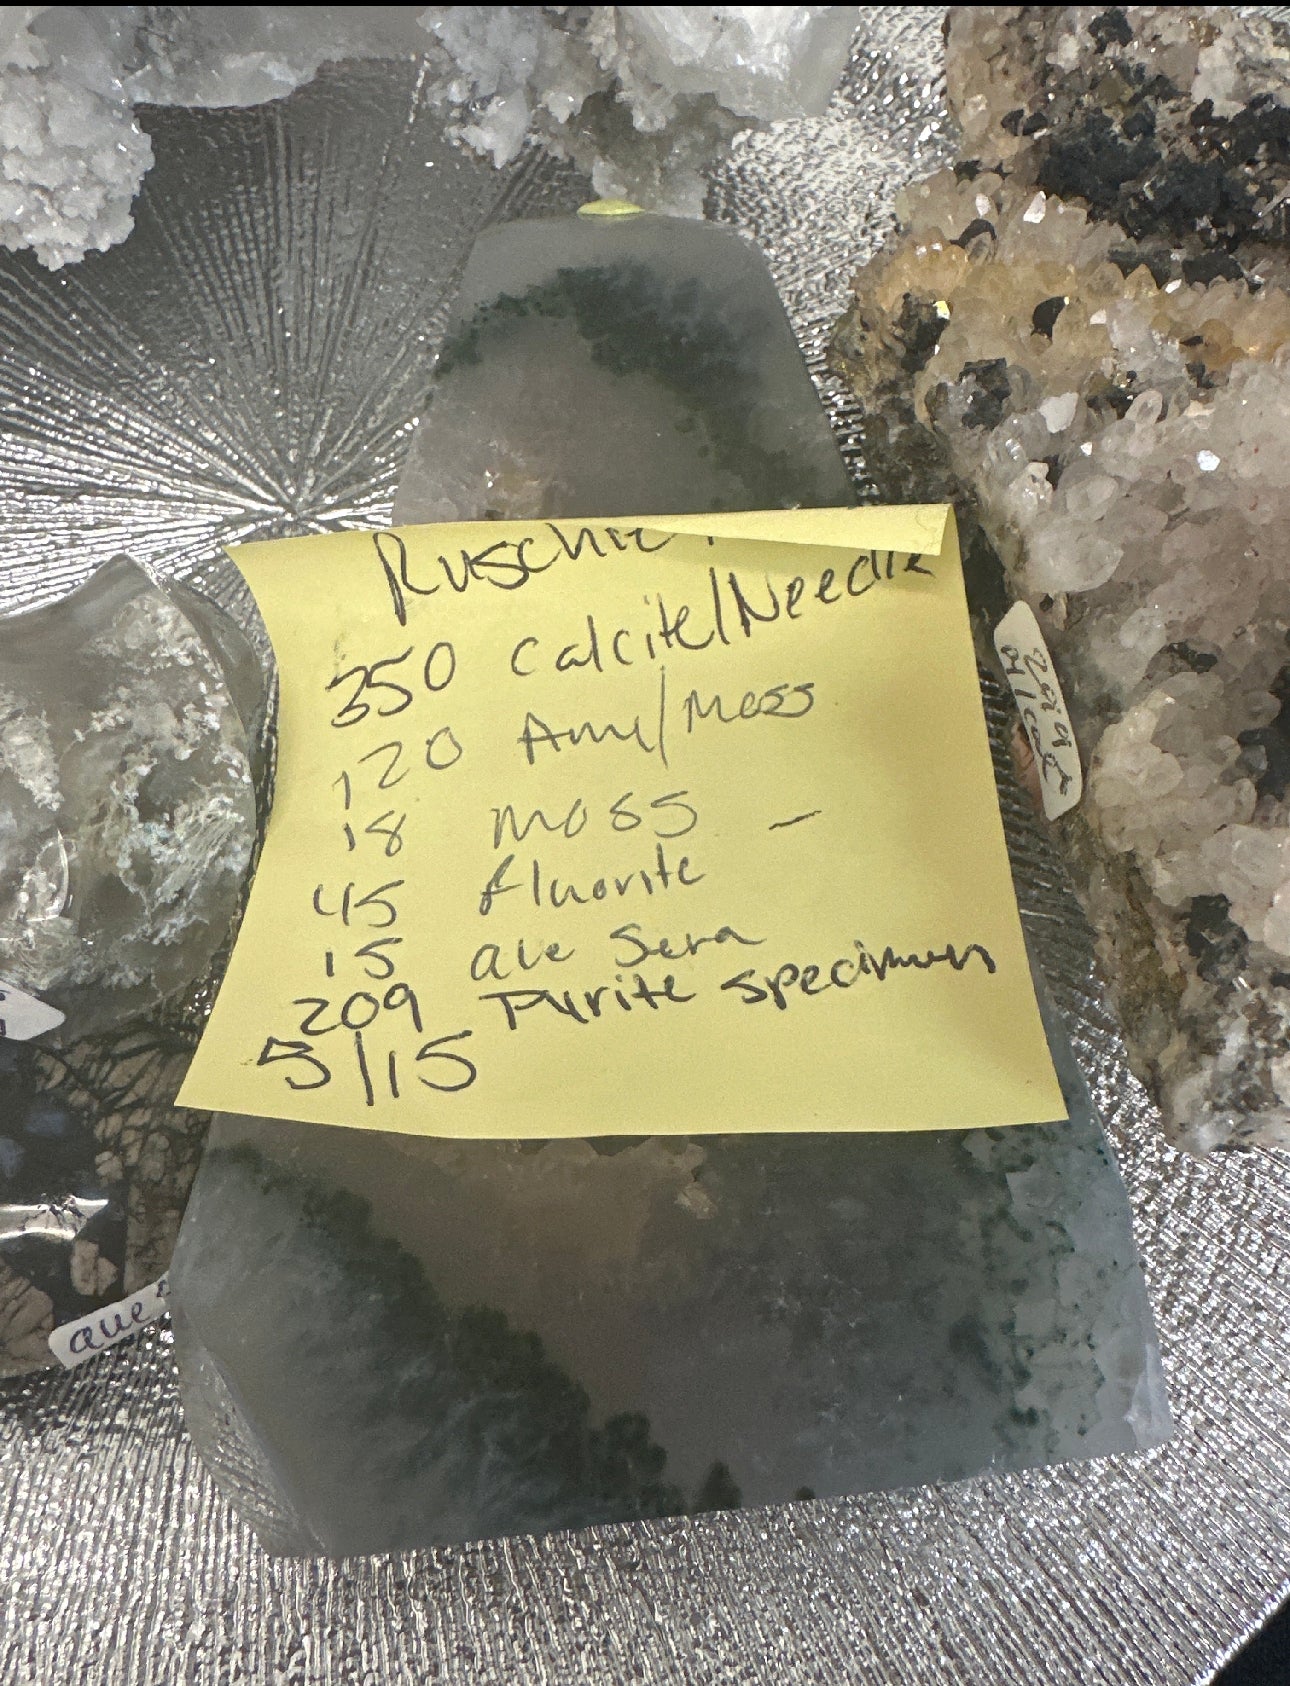 350 Calcite/Needle
120 Ame/Moss
18 moss -
45 fluorite
15 ave Sera
209 Pyrite specimen
5/15
ave